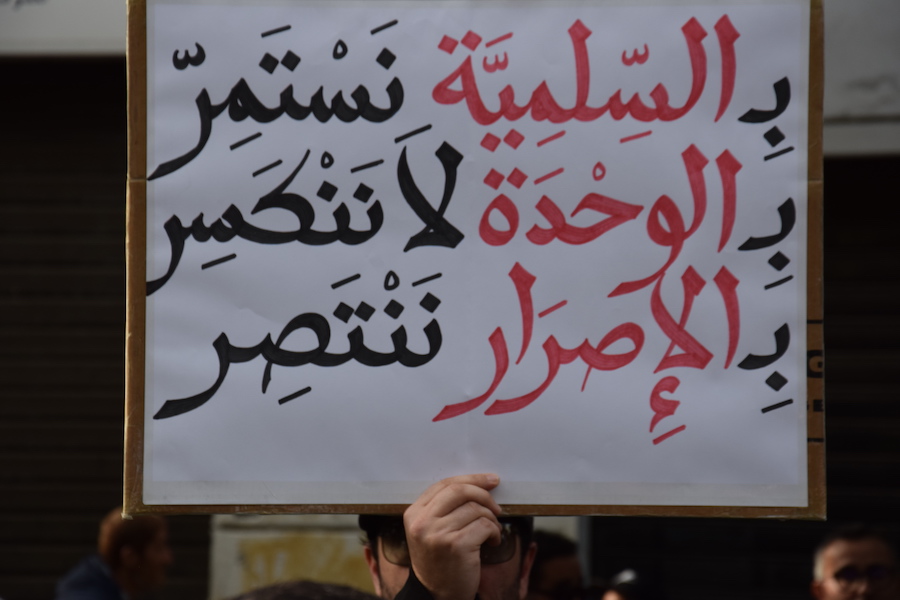 بِـ السِّلمِيَّة نَسْتَمِرّ
بِـ الوحْدَة لاَ نَنْكَسِر
بِـ الإِصرَار نَنْتَصِر